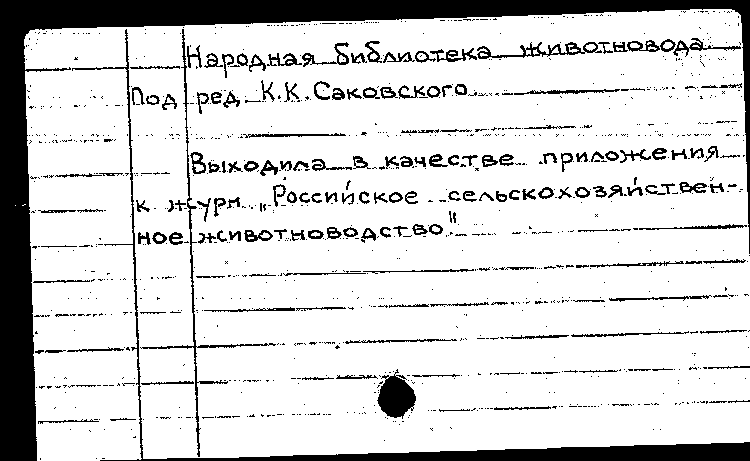 Народная библиотека животновода
Под ред. К.К. Саковского.
Выходила в качестве приложения
к журн. „Российское сельскохозяйствен-
ное животноводство"